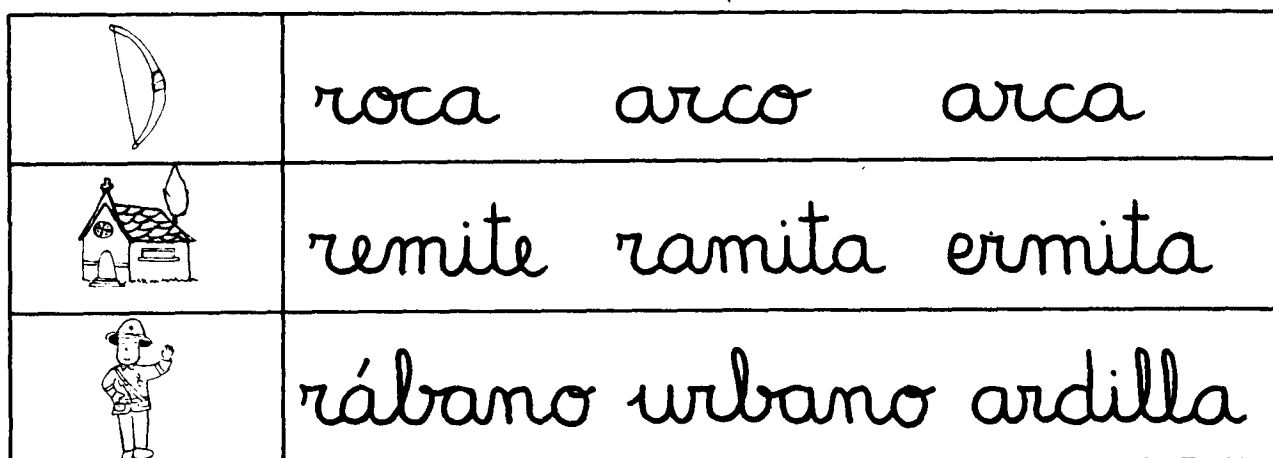 roca arco arca
remite ramita ermita
rábano urbano ardilla